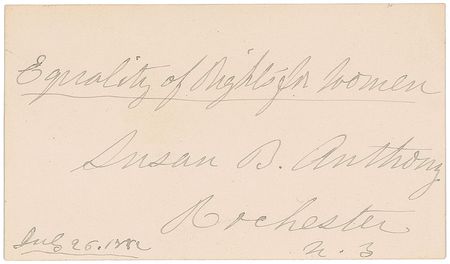 Equality of Rights for Women
Susan B. Anthony
Rochester
N. Y
26. 1882